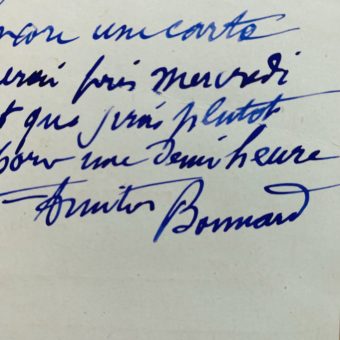 ncore une carte
erai pris mercredi
t que j'irais plutôt
pour une demi heure
Amitiés Bonnard